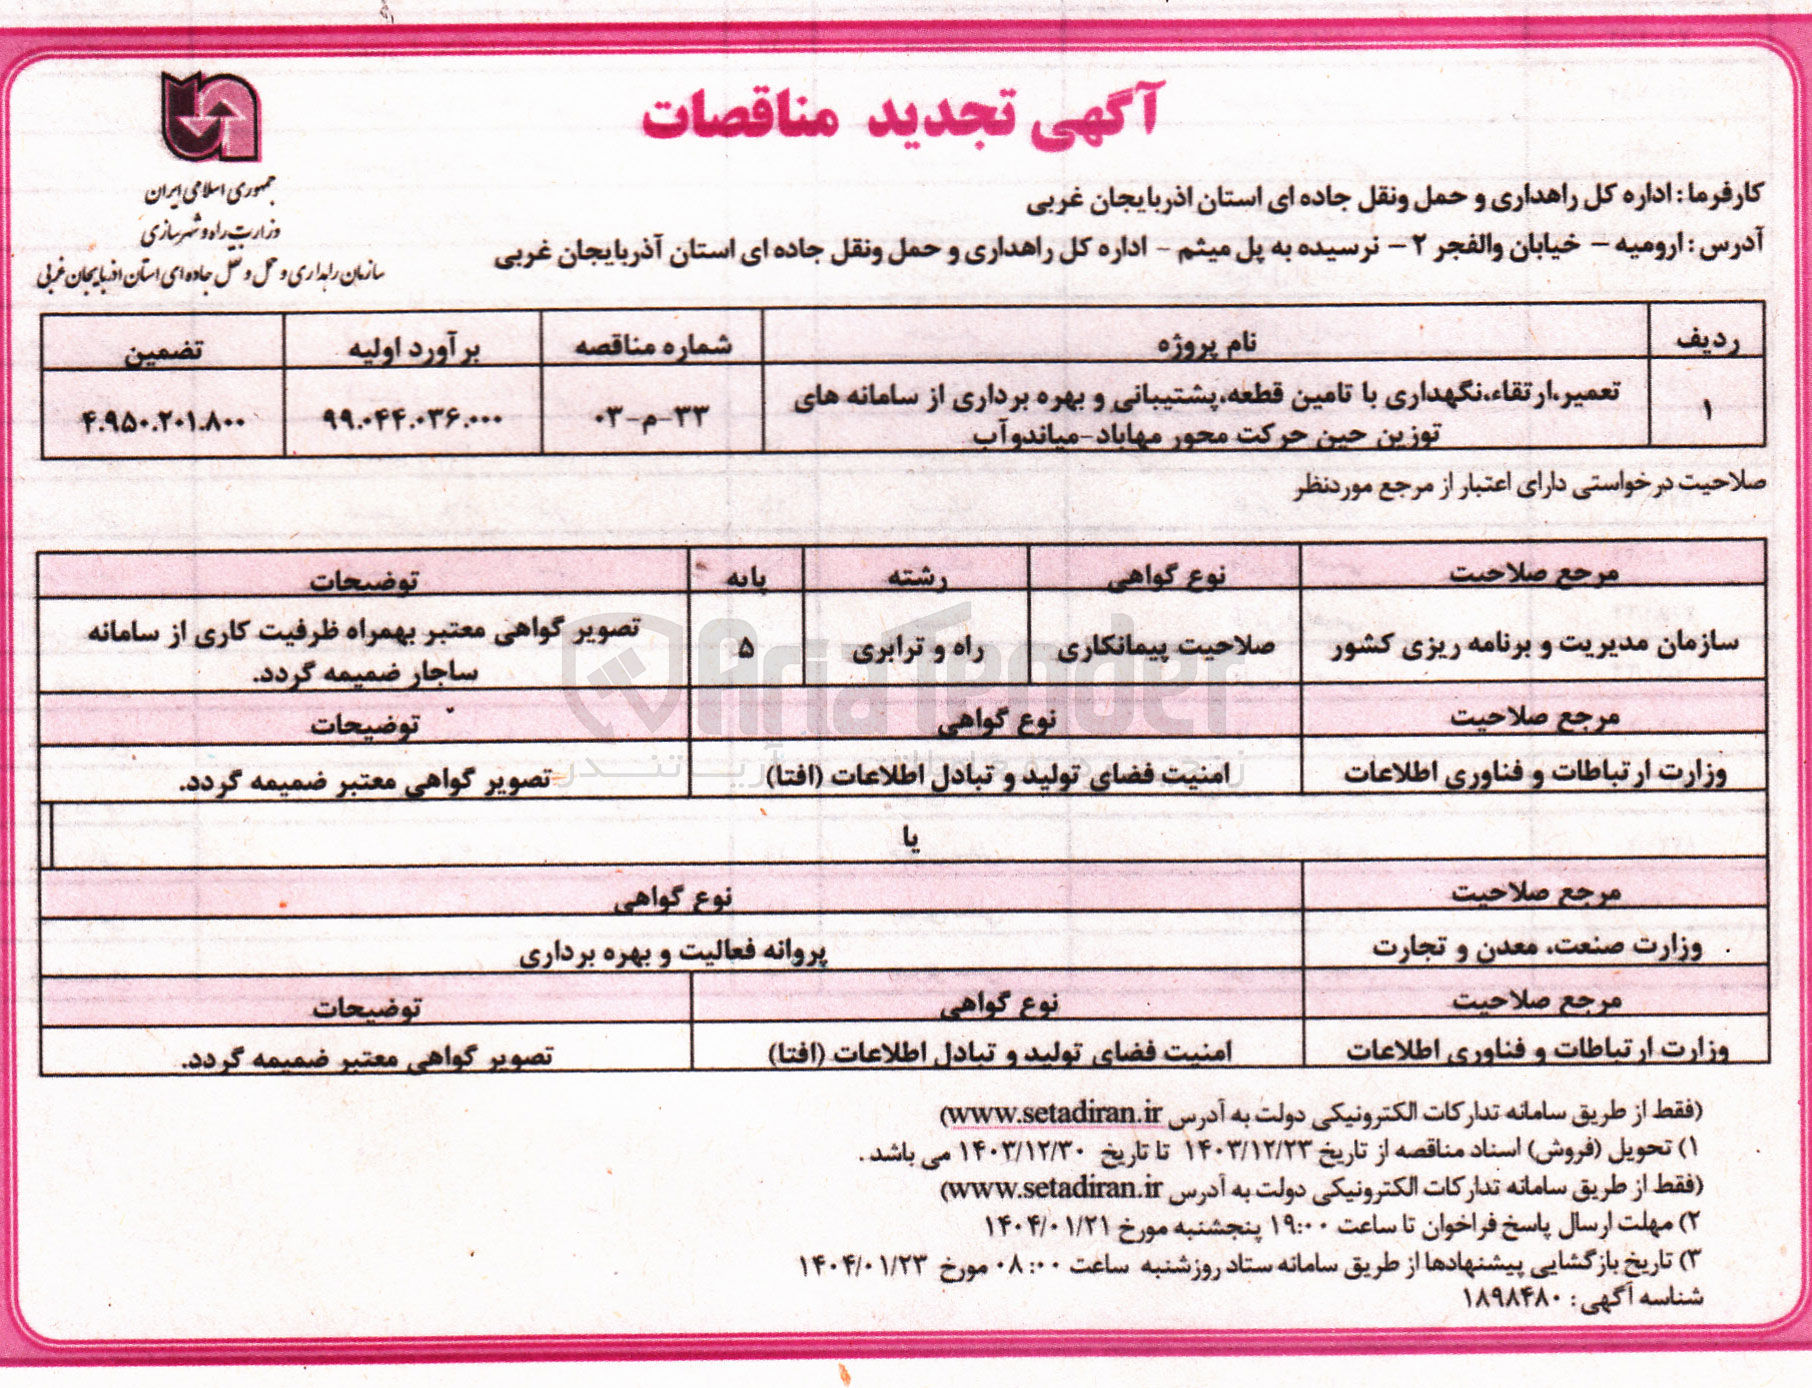 آگهی تجدید مناقصات
جمهوری اسلامی ایران
وزارت راه و شهرسازی
سازمان راهداری و حمل و نقل جاده ای استان اذربایجان غربی
کارفرما : اداره کل راهداری و حمل ونقل جاده ای استان اذربایجان غربی
آدرس : ارومیه – خیابان والفجر ۲ – نرسیده به پل میثم – اداره کل راهداری و حمل ونقل جاده ای استان آذربایجان غربی
ردیف نام پروژه شماره مناقصه برآورد اولیه تضمین
۱ تعمیر،ارتقاء،نگهداری با تامین قطعه،پشتیبانی و بهره برداری از سامانه های ۳۳-م-۰۳ ۹۹.۰۴۴.۰۳۶.۰۰۰ ۴.۹۵۰.۲۰۱.۸۰۰
توزین حین حرکت محور مهاباد-میاندوآب
صلاحیت درخواستی دارای اعتبار از مرجع موردنظر
مرجع صلاحیت نوع گواهی رشته پایه توضیحات
سازمان مدیریت و برنامه ریزی کشور صلاحیت پیمانکاری راه و ترابری ۵ تصویر گواهی معتبر بهمراه ظرفیت کاری از سامانه
ساجار ضمیمه گردد.
مرجع صلاحیت نوع گواهی توضیحات
وزارت ارتباطات و فناوری اطلاعات امنیت فضای تولید و تبادل اطلاعات (افتا) تصویر گواهی معتبر ضمیمه گردد.
یا
مرجع صلاحیت نوع گواهی
وزارت صنعت، معدن و تجارت پروانه فعالیت و بهره برداری
مرجع صلاحیت نوع گواهی توضیحات
وزارت ارتباطات و فناوری اطلاعات امنیت فضای تولید و تبادل اطلاعات (افتا) تصویر گواهی معتبر ضمیمه گردد.
AriaTender
(فقط از طریق سامانه تدارکات الکترونیکی دولت به آدرس www.setadiran.ir)
۱) تحویل (فروش) اسناد مناقصه از تاریخ ۱۴۰۳/۱۲/۲۳ تا تاریخ ۱۴۰۳/۱۲/۳۰ می باشد .
(فقط از طریق سامانه تدارکات الکترونیکی دولت به آدرس www.setadiran.ir)
۲) مهلت ارسال پاسخ فراخوان تا ساعت ۱۹:۰۰ پنجشنبه مورخ ۱۴۰۴/۰۱/۲۱
۳) تاریخ بازگشایی پیشنهادها از طریق سامانه ستاد روزشنبه ساعت ۰۸:۰۰ مورخ ۱۴۰۴/۰۱/۲۳
شناسه آگهی : ۱۸۹۸۴۸۰